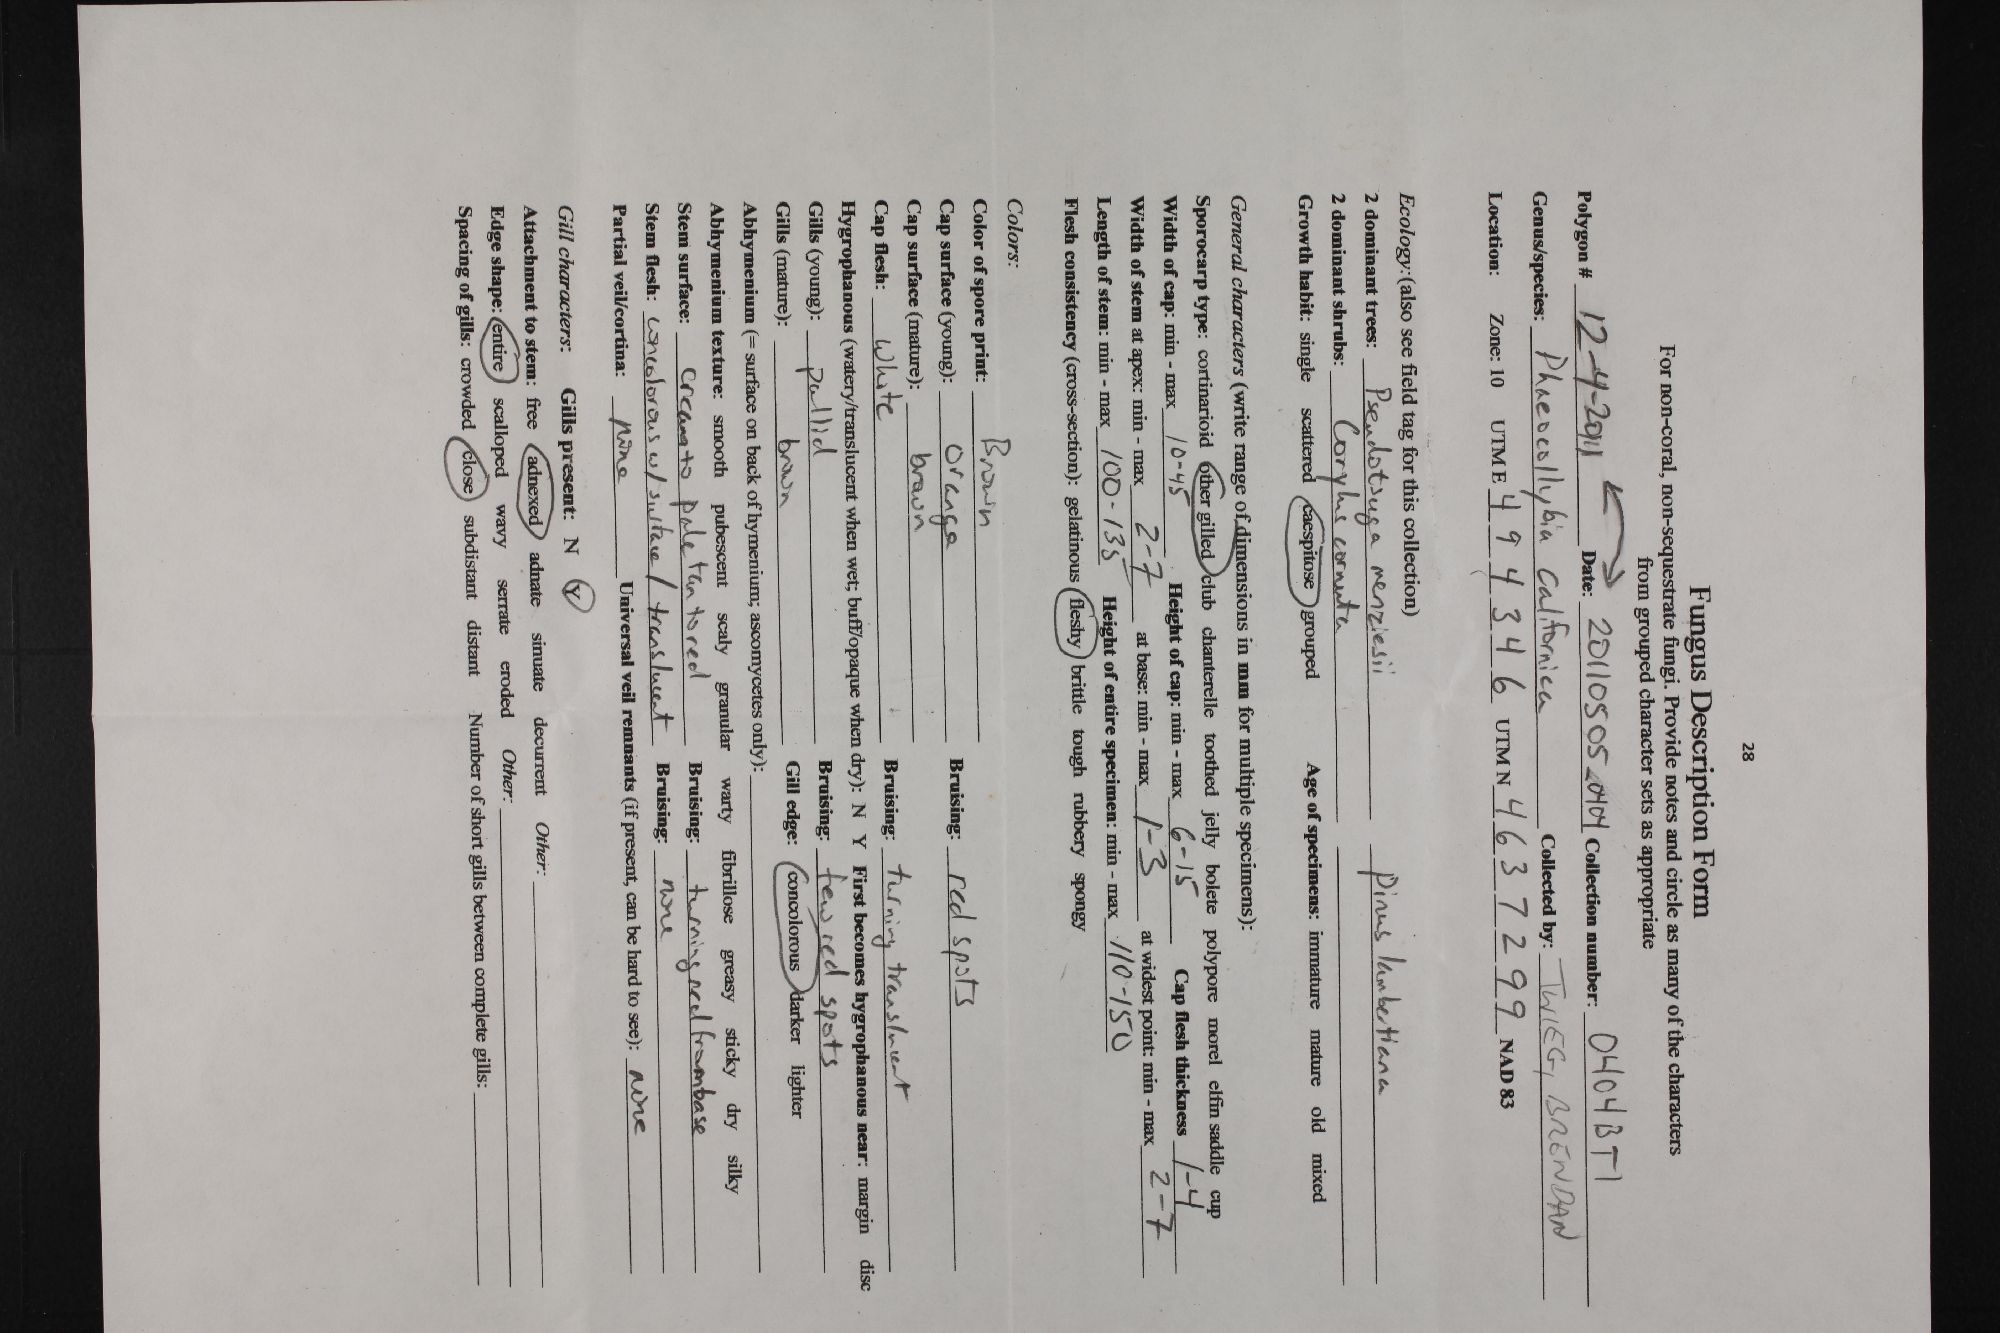 28
Fungus Description Form
For non-coral, non-sequestrate fungi. Provide notes and circle as many of the characters
from grouped character sets as appropriate
Polygon # 12-4-2011 Date: 20110505_0404 Collection number: 0404BT1
Genus/species: Phaeocollybia Californica Collected by: TWIEG, BRENDAN
Location: Zone: 10 UTM E 494346 UTM N 4637299 NAD 83
Ecology: (also see field tag for this collection)
2 dominant trees: Pseudotsuga menziesii Pinus lambertiana
2 dominant shrubs: Corylus cornuta
Growth habit: single scattered caespitose grouped Age of specimens: immature mature old mixed
General characters (write range of dimensions in mm for multiple specimens):
Sporocarp type: cortinarioid other gilled club chanterelle toothed jelly bolete polypore morel elfin saddle cup
Width of cap: min - max 10-45 Height of cap: min - max 6-15 Cap flesh thickness 1-4
Width of stem at apex: min - max 2-7 at base: min - max 1-3 at widest point: min - max 2-7
Length of stem: min - max 100-135 Height of entire specimen: min - max 110-150
Flesh consistency (cross-section): gelatinous fleshy brittle tough rubbery spongy
Colors:
Color of spore print: Brown
Cap surface (young): orange Bruising: red spots
Cap surface (mature): brown
Cap flesh: white Bruising: turning translucent
Hygrophanous (watery/translucent when wet; buff/opaque when dry): N Y First becomes hygrophanous near: margin disc
Gills (young): pallid Bruising: few red spots
Gills (mature): brown Gill edge: concolorous darker lighter
Abhymenium (= surface on back of hymenium; ascomycetes only):
Abhymenium texture: smooth pubescent scaly granular warty fibrillose greasy sticky dry silky
Stem surface: cream to pale tan to red Bruising: turning red from base
Stem flesh: concolorous w/ surface / translucent Bruising: none
Partial veil/cortina: none Universal veil remnants (if present, can be hard to see): none
Gill characters: Gills present: N Y
Attachment to stem: free adnexed adnate sinuate decurrent Other:
Edge shape: entire scalloped wavy serrate eroded Other:
Spacing of gills: crowded close subdistant distant Number of short gills between complete gills: